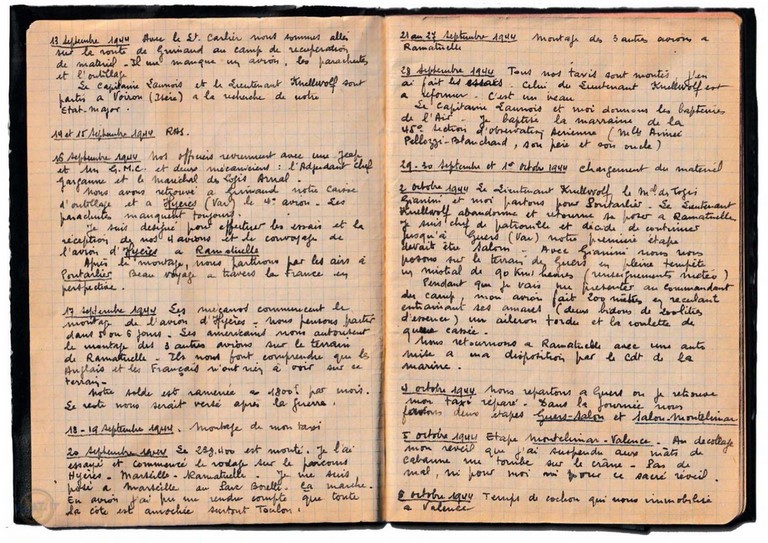 13 Septembre 1944 Avec le Lt. Carlier nous sommes allés
sur la route de Grimaud au camp de recuperation
de materiel. Il me manque un avion, les parachutes
et l'outillage.
Le Capitaine Launois et le Lieutenant Knellwolf sont
partis a Voiron (Isère) a la recherche de notre
Etat-major.
14 et 15 Septembre 1944 RAS.
16 Septembre 1944 Nos officiers reviennent avec une Jeep
et un G.M.C. et deux mécaniciens : l'Adjudant chef
Garganne et le Marechal des Logis Arnal.
Nous avons retrouvé a Grimaud notre caisse
d'outillage et a Hyères (Var) le 4e avion. Les
parachutes manquent toujours.
Je suis designé pour effectuer les essais et la
réception de nos 4 avions et le convoyage de
l'avion d'Hyères a Ramatuelle
Après le montage, nous partirons par les airs à
Pontarlier Beau voyage a travers la France en
perspective.
17 Septembre 1944 Les mécanos commencent le
montage de l'avion d'Hyères - Nous pensons partir
dans 5 ou 6 jours - Les americains nous autorisent
le montage des 3 autres avions sur le terrain
de Ramatuelle - Ils nous font comprendre que les
Anglais et les Français n'ont rien a voir sur ce
terrain.
Notre solde est ramenée a 1800f par mois.
Le reste nous serait versé apres la guerre.
18 - 19 Septembre 1944. Montage de mon taxi
20 Septembre 1944 Le 289.400 est monté. Je l'ai
essayé et commencé le rodage sur le parcours
Hyères - Marseille - Ramatuelle. Je me suis
posé a Marseille au Parc Borelli. Ca marche.
En avion j'ai pu me rendre compte que toute
la côte est amochée surtout Toulon.
21 au 27 Septembre 1944 Montage des 3 autres avions a
Ramatuelle
28 Septembre 1944 Tous nos taxis sont montés j'en
ai fait les essais. Celui du Lieutenant Knellwolf est
a reformer. C'est un veau
Le Capitaine Launois et moi donnons les baptêmes
de l'Air. Je baptise la marraine de la
45e Section d'observation Aerienne (Mlle Aimée
Pellozzi-Blanchard, son père et son oncle)
29-30 Septembre et 1er Octobre 1944 chargement du materiel
2 octobre 1944 Le Lieutenant Knellwolf, le Mal des Logis
Gianini et moi partons pour Pontarlier. Le Lieutenant
Knellwolf abandonne et retourne se poser a Ramatuelle
Je suis chef de patrouille et décide de continuer
jusqu'à Cuers (Var) notre premiere étape
devait être Salon - Avec Gianini nous nous
posons sur le terrain de Cuers en pleine tempête
un mistral de 90 km/heures (renseignements météo)
Pendant que je vais me presenter au commandant
du camp, mon avion fait 200 mètres en reculant
entrainant ses amares (deux bidons de 200 litres
d'essence) un aileron tordu et la roulette de
queue cassée.
Nous retournons a Ramatuelle avec une auto
mise a ma disposition par le Cdt de la
marine.
4 octobre 1944 Nous repartons a Cuers ou je retrouve
mon taxi réparé. Dans la journée nous
faisons deux étapes Cuers-Salon et Salon-Montelimar
5 octobre 1944 Etape Montelimar-Valence. Au decollage
mon réveil que j'ai suspendu aux mats de
cabanne me tombe sur le crâne - Pas de
mal, ni pour moi ni pour ce sacré réveil.
6 octobre 1944 Temps de cochon qui nous immobilise
a Valence